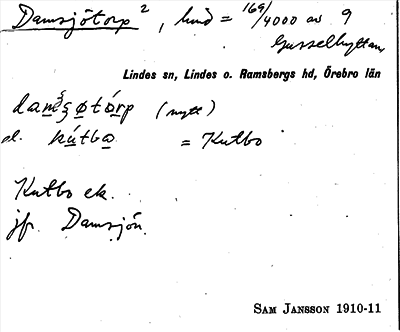 Damsjötorp 2, lund = 169/4000 av 9
Gusselhyttan
Lindes sn, Lindes o. Ramsbergs hd, Örebro län
(nytt)
el. kútba = Kutbo
Kutbo ek.
jfr. Damsjön.
SAM JANSSON 1910-11